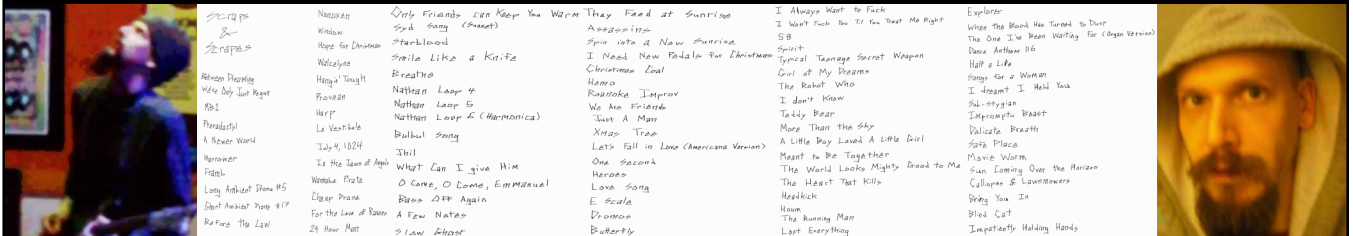 Scraps
&
Scrapes
Between Dreaming
We've Only Just Begun
MB1
Pteradactyl
A Newer World
Harrower
Frank
Long Ambient Drone #5
Short Ambient Drone #17
Before the Law
Nanoxen
Window
Hope for Christmas
Walcelyne
Hangin' Tough
Provean
Harp
La Vestibule
July 4, 1024
In the Jaws of Angels
Wannabe Pirate
Cheap Drone
For the Love of Raves
29 Hour Man
Only Friends can Keep You Warm
Syd Song (Sunset)
Starblood
Smile Like a Knife
Breathe
Nathan Loop 4
Nathan Loop 5
Nathan Loop 6 (Harmonica)
Bulbul Song
Ihil
What Can I give Him
O Come, O Come, Emmanuel
Bass Off Again
A Few Notes
Slow Ghost
They Feed at Sunrise
Assassins
Spin into a New Sunrise
I Need New Pedals for Christmas
Christmas Coal
Hemo
Roanoke Improv
We Are Friends
Just A Man
Xmas Tree
Let's Fall in Love (Americana Version)
One Second
Heroes
Love Song
E Scale
Dromos
Butterfly
I Always Want to Fuck
I Won't Fuck You Til You Treat Me Right
58
Spirit
Typical Teenage Secret Weapon
Girl of My Dreams
The Robot Who
I don't Know
Teddy Bear
More Than the Sky
A Little Boy Loved A Little Girl
Meant to Be Together
The World Looks Mighty Good to Me
The Heart That Kills
Headkick
Houm
The Running Man
Lost Everything
Explorer
When the Blood Has Turned to Dust
The One I've Been Waiting For (Organ Version)
Dance Anthem 116
Half a Life
Songs for a Woman
I dreamt I Held You
Sub-stygian
Impromptu Beast
Delicate Breath
Safe Place
Movie Worm
Sun Coming Over the Horizon
Calliopes & Lawnmowers
Bring You In
Blind Cat
Impatiently Holding Hands